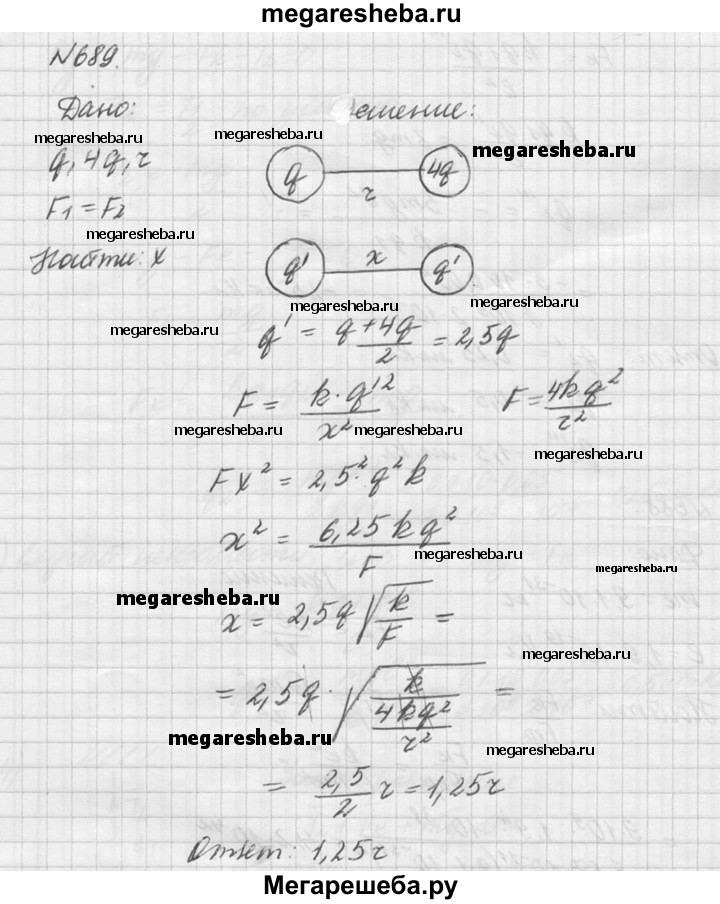 megaresheba.ru
№689.
Дано: ешение:
megaresheba.ru megaresheba.ru megaresheba.ru
q, 4q, r q 4q
r
F₁ = F₂
megaresheba.ru
Найти: x q' x q'
megaresheba.ru megaresheba.ru
q' = (q+4q)/2 = 2,5q
F = (k·q'²)/x² F = 4kq²/r²
megaresheba.ru megaresheba.ru megaresheba.ru
Fx² = 2,5²·q²k
x² = 6,25kq²/F
megaresheba.ru megaresheba.ru
megaresheba.ru
x = 2,5q √(k/F) =
megaresheba.ru
= 2,5q·√(k/(4kq²/r²)) =
megaresheba.ru megaresheba.ru
= 2,5/2 r = 1,25r
Ответ: 1,25r
Мегарешеба.ру